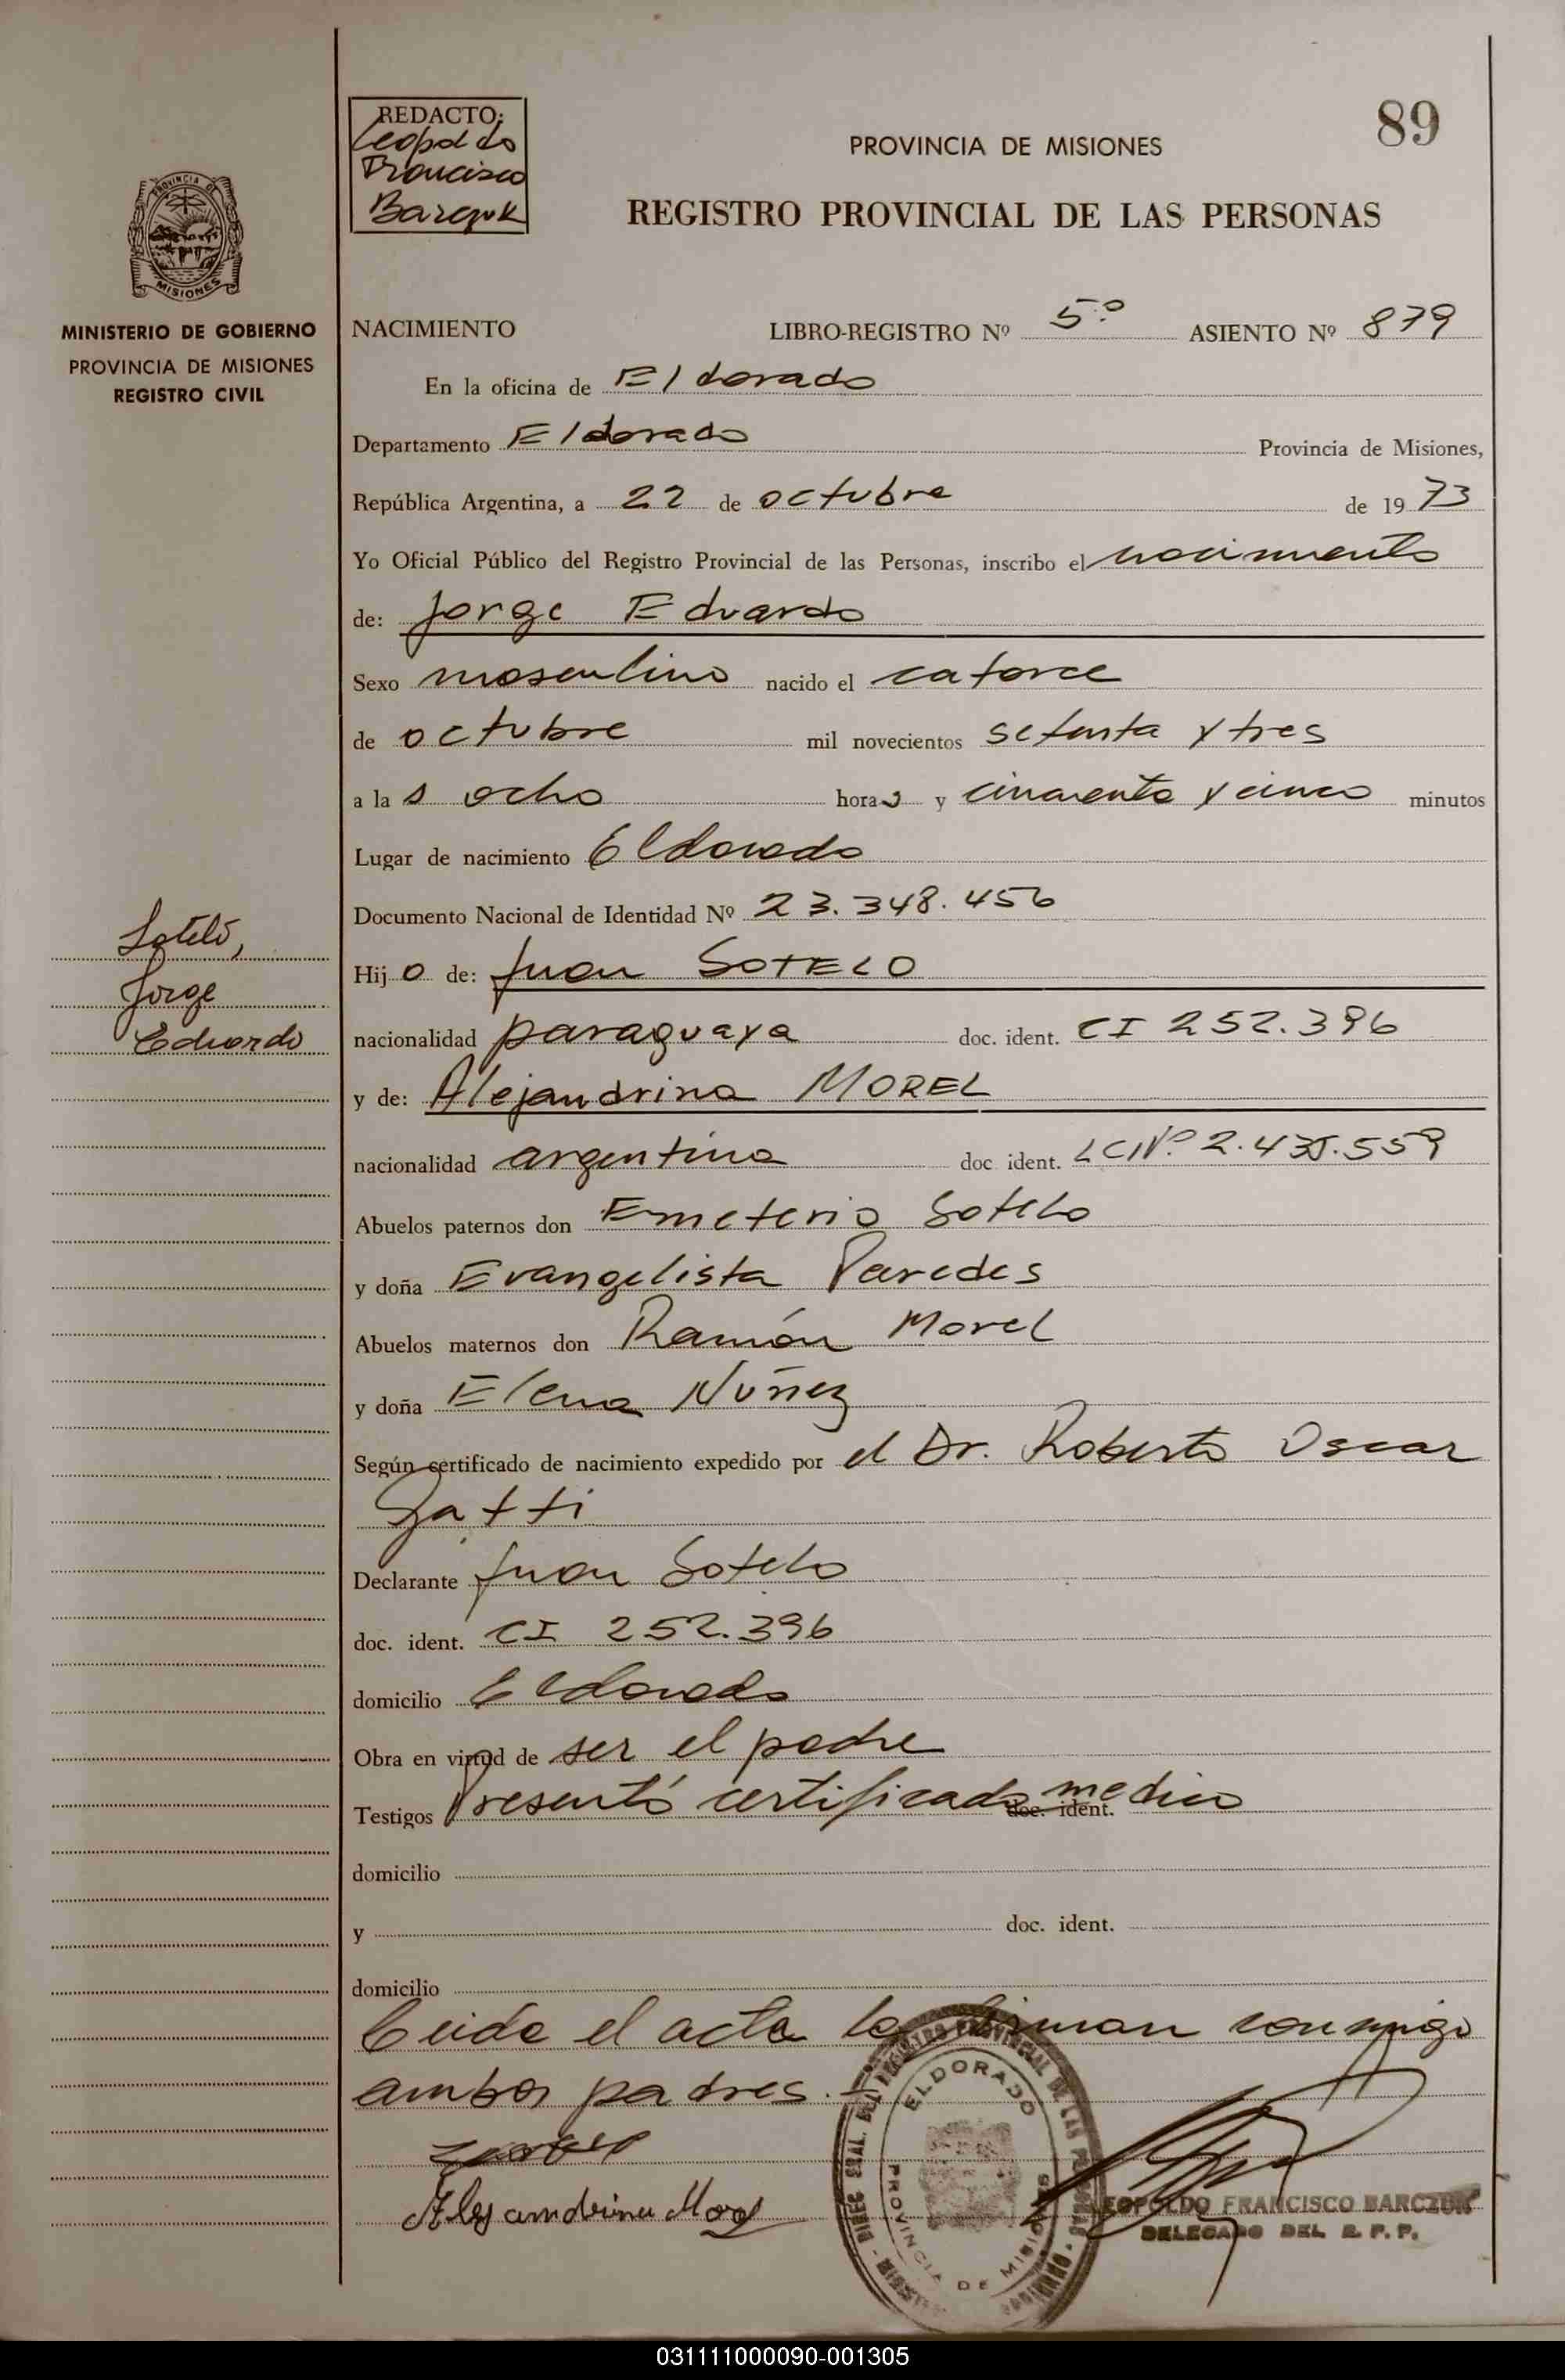 REDACTO:
Leopoldo
Francisco
Barczuk
89
PROVINCIA DE MISIONES
REGISTRO PROVINCIAL DE LAS PERSONAS
PROVINCIA DE
MISIONES
MINISTERIO DE GOBIERNO
PROVINCIA DE MISIONES
REGISTRO CIVIL
NACIMIENTO LIBRO-REGISTRO Nº 5º ASIENTO Nº 879
En la oficina de Eldorado
Departamento Eldorado Provincia de Misiones,
República Argentina, a 22 de octubre de 1973
Yo Oficial Público del Registro Provincial de las Personas, inscribo el nacimiento
de: Jorge Eduardo
Sexo masculino nacido el catorce
de octubre mil novecientos setenta y tres
a las ocho horas y cincuenta y cinco minutos
Lugar de nacimiento Eldorado
Documento Nacional de Identidad Nº 23.348.456
Sotelo,
Jorge
Eduardo
Hijo de: Juan SOTELO
nacionalidad paraguaya doc. ident. CI 252.396
y de: Alejandrina MOREL
nacionalidad argentina doc ident. LC Nº 2.435.559
Abuelos paternos don Emeterio Sotelo
y doña Evangelista Paredes
Abuelos maternos don Ramón Morel
y doña Elena Núñez
Según certificado de nacimiento expedido por el Dr. Roberto Oscar
Gatti
Declarante Juan Sotelo
doc. ident. CI 252.396
domicilio Eldorado
Obra en virtud de ser el padre
Testigos Presentó certificado medico doc. ident.
domicilio
y doc. ident.
domicilio
Leida el acta la firman conmigo
ambos padres.-
Alejandrina Morel
ELDORADO
PROVINCIA DE MISIONES
REGISTRO PROVINCIAL DE LAS PERSONAS
LEOPOLDO FRANCISCO BARCZUK
DELEGADO DEL R. P. P.
031111000090-001305